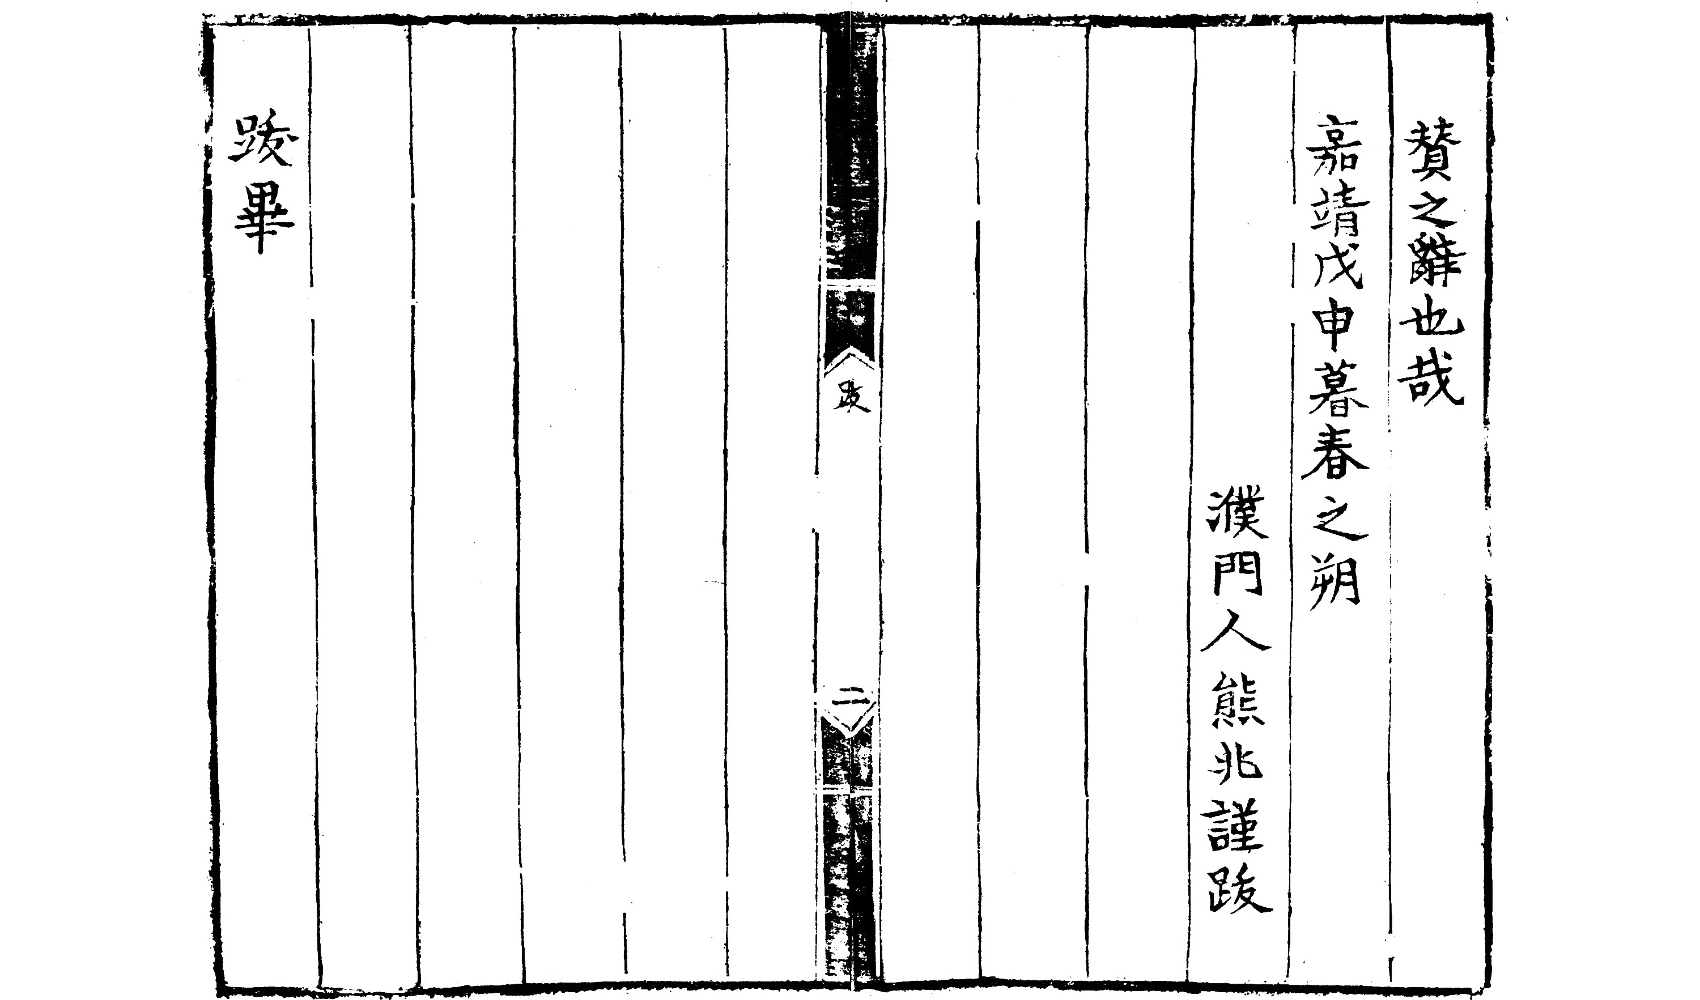 賛之離也哉
嘉靖戊申暮春之朔
濮門人熊兆謹跋
跋
二
跋畢